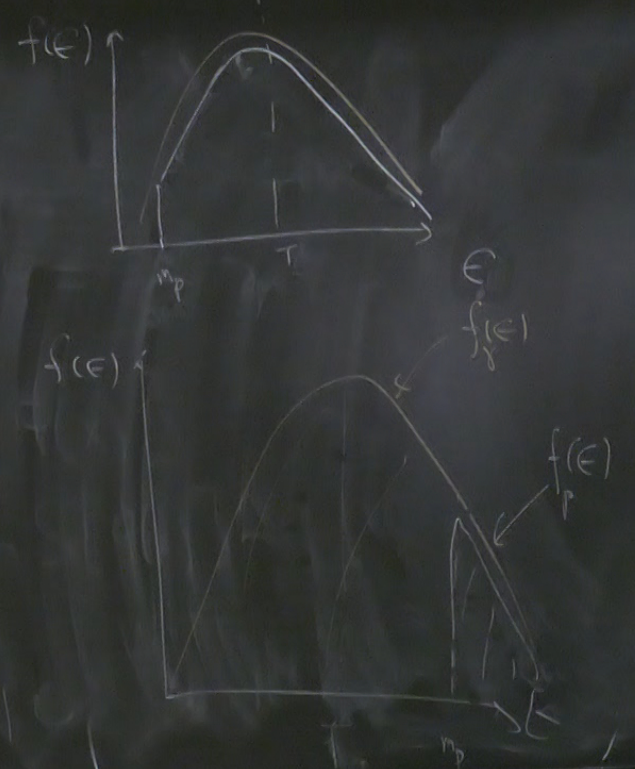 f(ϵ)
T
m_p
ϵ
f_γ(ϵ)
f(ϵ)
f_p(ϵ)
T
m_p
ϵ